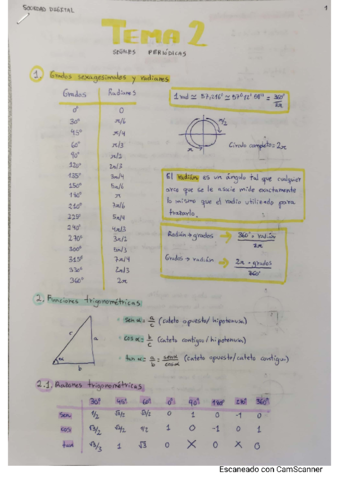 SOCIEDAD DIGITAL
1
TEMA 2
SEÑALES PERIÓDICAS
1. Grados sexagesimales y radianes
Grados Radianes
0º 0
30º π/6
45º π/4
60º π/3
90º π/2
π/4
150º 5π/6
π
210º 7π/6
225º
240º 4π/3
270º 3π/2
300º 5π/3
315º 7π/4
330º
360º 2π
1 rad ≃ 57,296º ≃ 57º = 360º/2π
π/2
π
Círculo completo = 2π
El radián es un ángulo tal que cualquier
arco que se le asocie mide exactamente
lo mismo que el radio utilizado para
trazarlo.
Radián → grados → 360º · radián / 2π
Grados → radián → 2π · grados / 360º
2. Funciones trigonométricas
sen α = a/c (cateto opuesto/hipotenusa)
cos α = b/c (cateto contiguo/hipotenusa)
tan α = a/b = (cateto opuesto/cateto contiguo)
c
a
α
b
2.1 Razones trigonométricas
30º 45º 60º 0º 180º 360º
sen 1/2 √2/2 √3/2 0 1 0 -1 0
cos √3/2 √2/2 1 0 -1 0 1
√3/3 1 √3 0 X 0 X 0
Escaneado con CamScanner